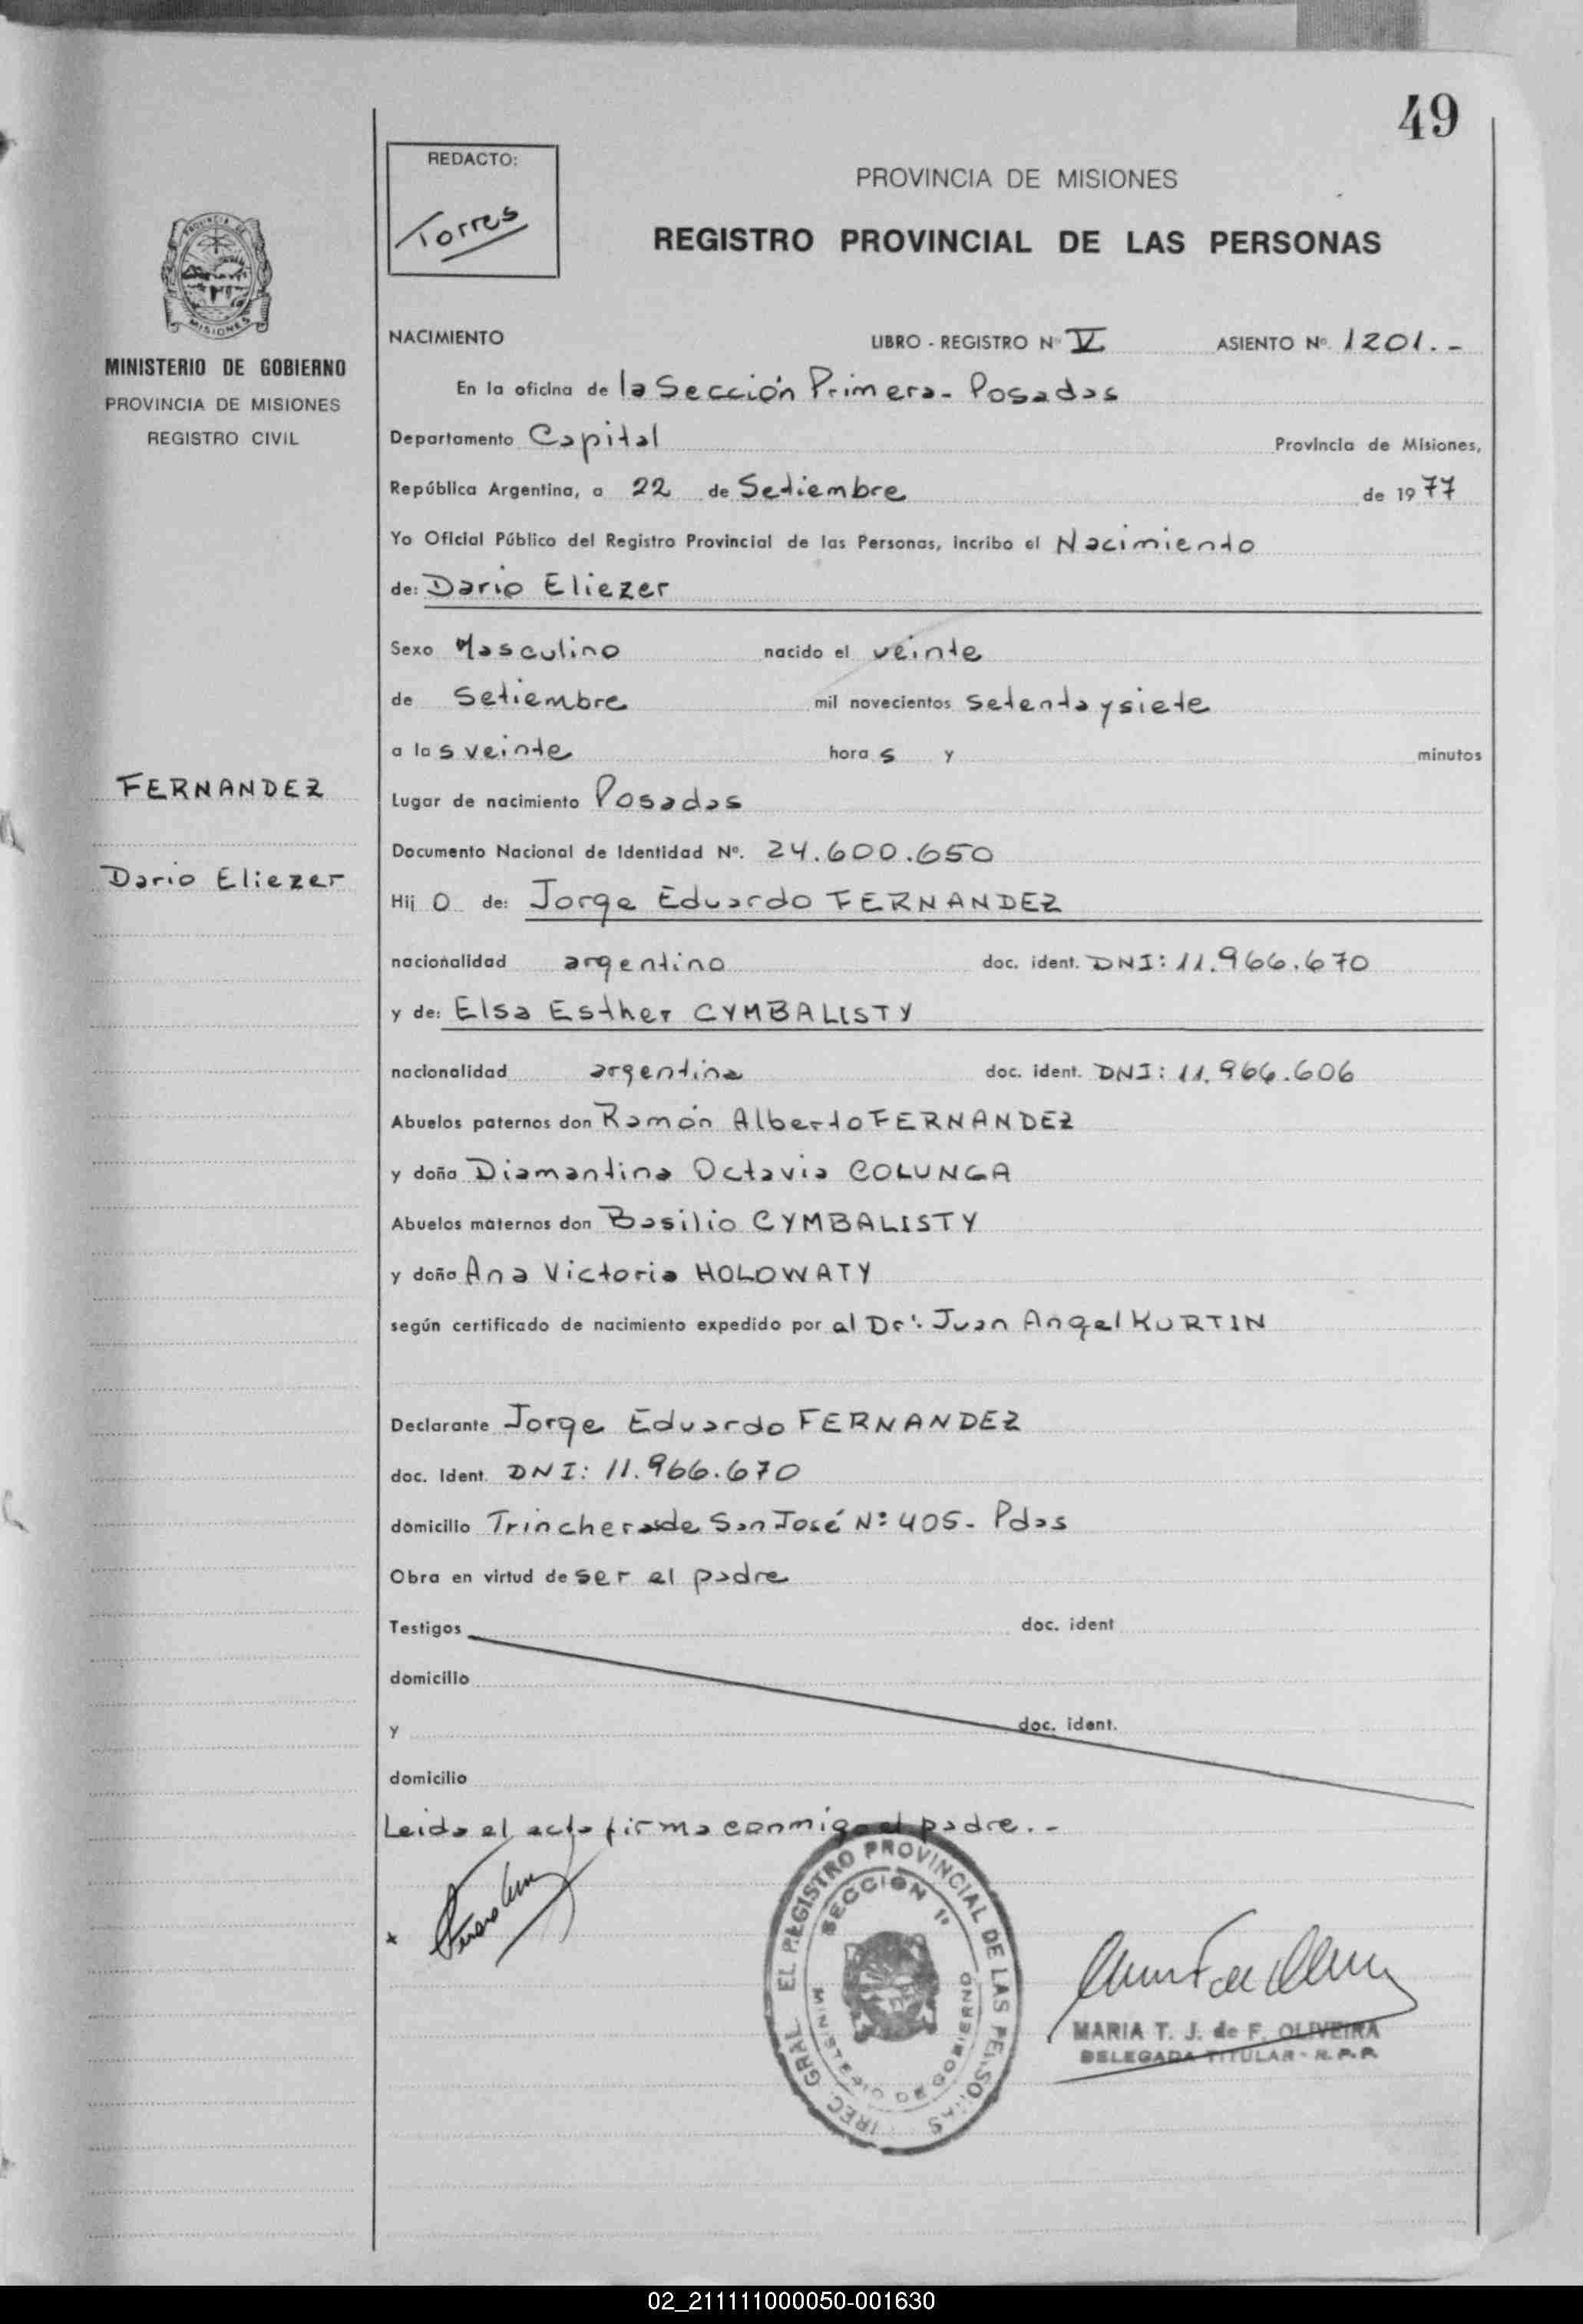 49
REDACTO:
Torres
PROVINCIA DE MISIONES
REGISTRO PROVINCIAL DE LAS PERSONAS
MINISTERIO DE GOBIERNO
PROVINCIA DE MISIONES
REGISTRO CIVIL
NACIMIENTO LIBRO - REGISTRO Nº V ASIENTO Nº 1201.-
En la oficina de la Sección Primera - Posadas
Departamento Capital Provincia de Misiones,
República Argentina, a 22 de Setiembre de 1977
Yo Oficial Público del Registro Provincial de las Personas, incribo el Nacimiento
de: Dario Eliezer
Sexo Masculino nacido el veinte
de Setiembre mil novecientos setenta y siete
a las veinte horas y minutos
FERNANDEZ
Lugar de nacimiento Posadas
Documento Nacional de Identidad Nº. 24.600.650
Dario Eliezer
Hijo de: Jorge Eduardo FERNANDEZ
nacionalidad argentino doc. ident. DNI: 11.966.670
y de: Elsa Esther CYMBALISTY
nacionalidad argentina doc. ident. DNI: 11.966.606
Abuelos paternos don Ramón Alberto FERNANDEZ
y doña Diamantina Octavia COLUNGA
Abuelos maternos don Basilio CYMBALISTY
y doña Ana Victoria HOLOWATY
según certificado de nacimiento expedido por al Dr: Juan Angel KURTIN
Declarante Jorge Eduardo FERNANDEZ
doc. Ident. DNI: 11.966.670
domicilio Trincheras de San José Nº 405 - Pdas
Obra en virtud de ser el padre
Testigos doc. ident
domicilio
y doc. ident.
domicilio
Leida el acta firma conmigo el padre.-
IREC. GRAL. EL REGISTRO PROVINCIAL DE LAS PERSONAS
SECCION 1ª
MINISTERIO DE GOBIERNO
MARIA T. J. de F. OLIVEIRA
DELEGADA TITULAR - R.P.P.
02_211111000050-001630